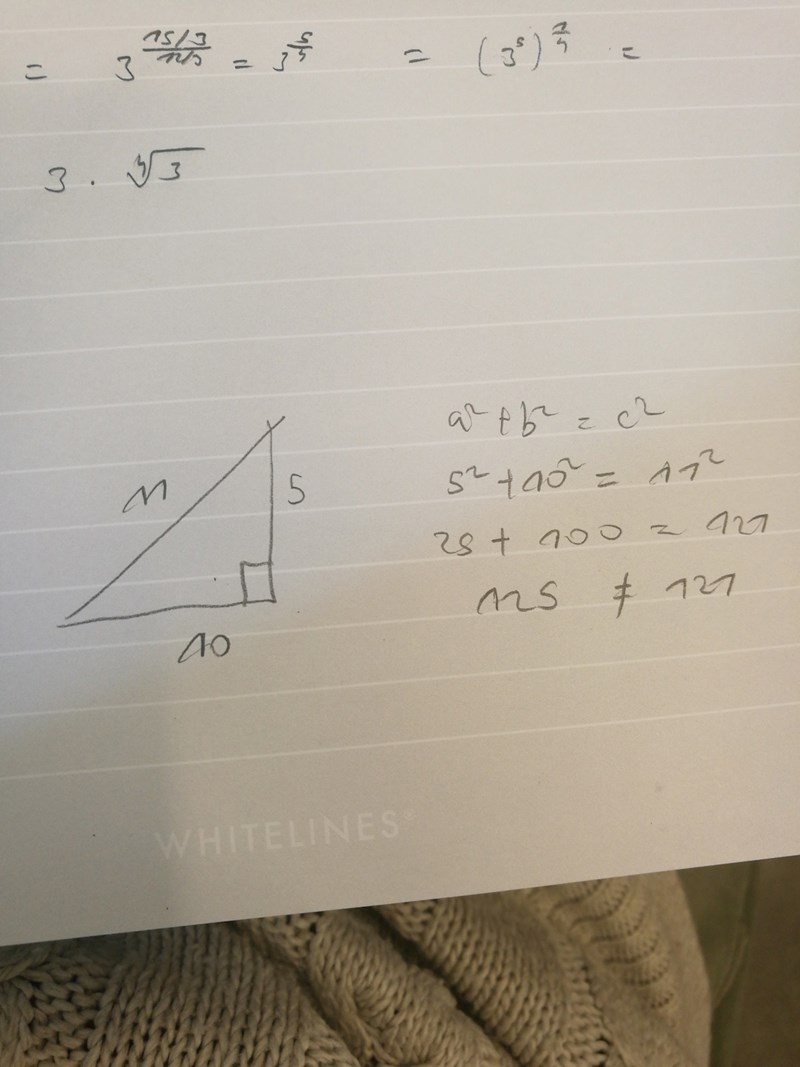 = 3^{\frac{15/3}{12/3}} = 3^{\frac{5}{4}} = (3^5)^{\frac{1}{4}} =
3 · \sqrt[4]{3}
a² + b² = c²
11 5
5² + 10² = 11²
25 + 100 = 121
125 ≠ 121
10
WHITELINES®